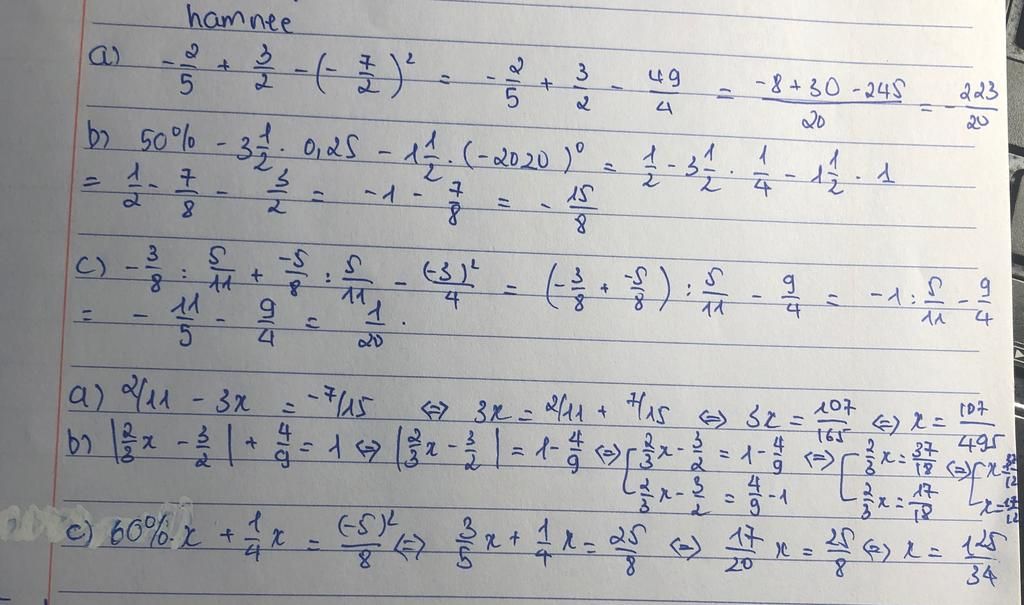 hamnee
a) -2/5 + 3/2 - (-7/2)² = -2/5 + 3/2 - 49/4 = (-8+30-245)/20 = -223/20
b) 50% - 3 1/2 . 0,25 - 1 1/2 . (-2020)⁰ = 1/2 - 3 1/2 . 1/4 - 1 1/2 . 1
= 1/2 - 7/8 - 3/2 = -1 - 7/8 = -15/8
c) -3/8 : 5/11 + -5/8 : 5/11 - (-3)²/4 = (-3/8 + -5/8) : 5/11 - 9/4 = -1 : 5/11 - 9/4
= -11/5 - 9/4 = 1/20 .
a) 2/11 - 3x = -7/15 ⇔ 3x = 2/11 + 7/15 ⇔ 3x = 107/165 ⇔ x = 107/495
b) |2/3 x - 3/2| + 4/9 = 1 ⇔ |2/3 x - 3/2| = 1 - 4/9 ⇔ [2/3 x - 3/2 = 1 - 4/9 ⇔ [2/3 x = 37/18 ⇔ [x = 37/12
2/3 x - 3/2 = 4/9 - 1 2/3 x = 17/18 x = 17/12
c) 60% . x + 1/4 x = (-5)²/8 ⇔ 3/5 x + 1/4 x = 25/8 ⇔ 17/20 x = 25/8 ⇔ x = 125/34